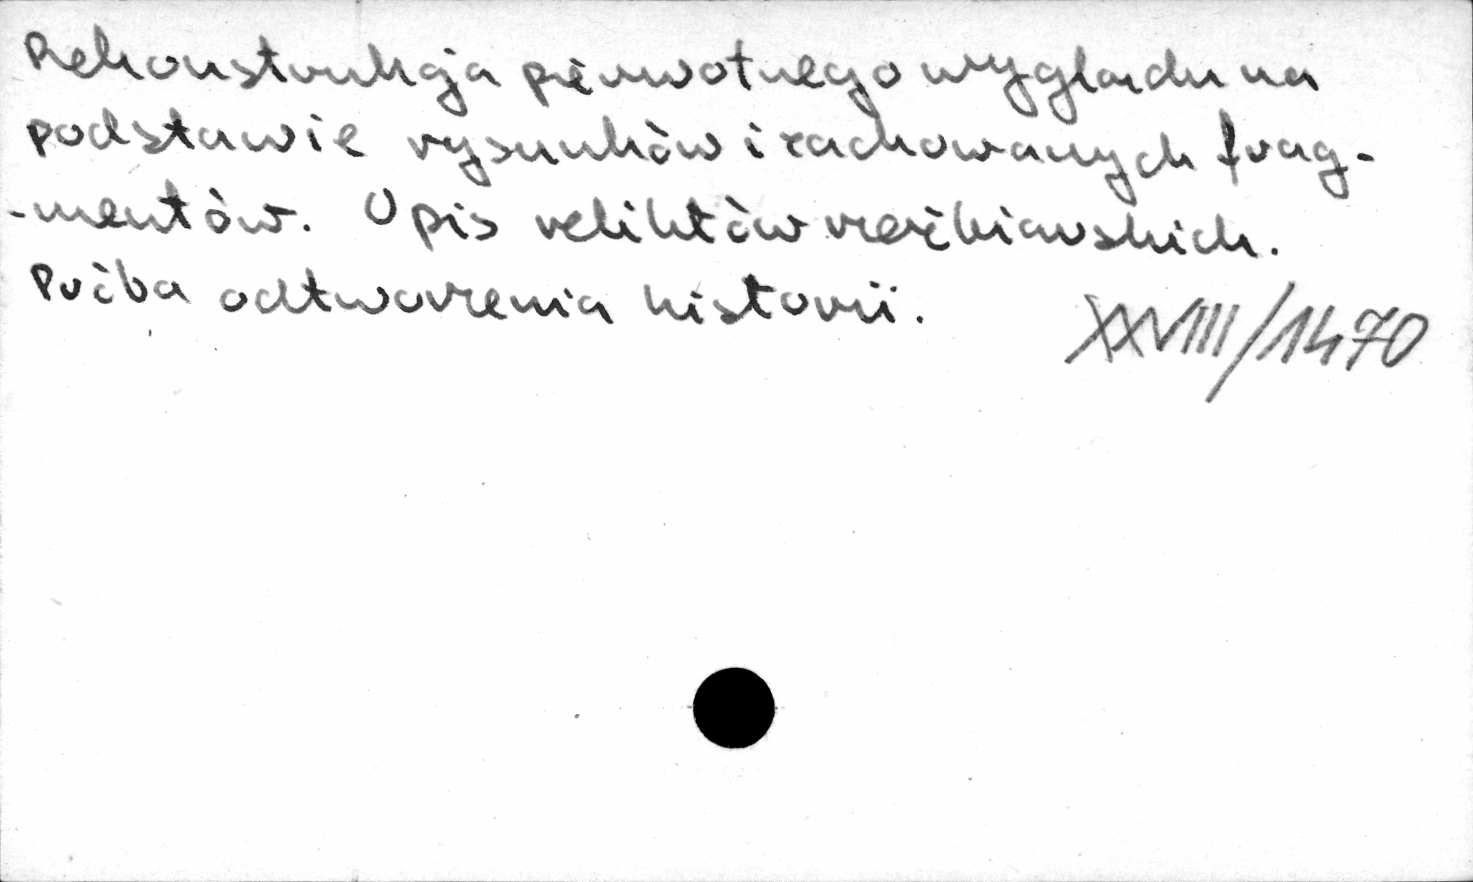 Rekonstrukcja pierwotnego wyglądu na
podstawie rysunków i zachowanych frag-
-mentów. Opis reliktów rzeźbiarskich.
Próba odtworzenia historii.
XXVIII/1470